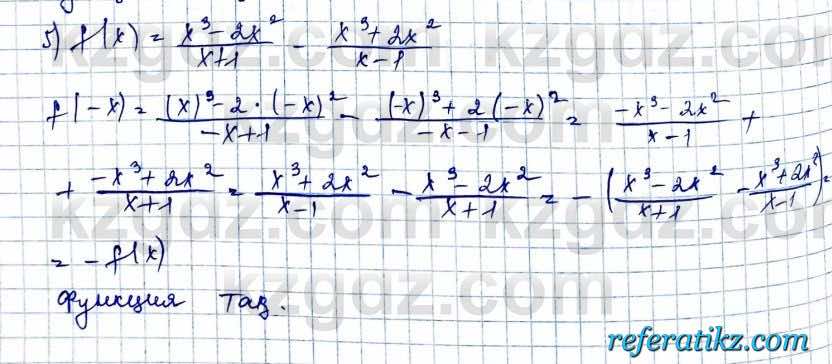 5) f(x) = (x³ - 2x²)/(x+1) - (x³ + 2x²)/(x-1)
f(-x) = ((x)³ - 2·(-x)²)/(-x+1) - ((-x)³ + 2(-x)²)/(-x-1) = (-x³ - 2x²)/(x-1) +
+ (-x³ + 2x²)/(x+1) = (x³ + 2x²)/(x-1) - (x³ - 2x²)/(x+1) = -((x³ - 2x²)/(x+1) - (x³ + 2x²)/(x-1)) =
= -f(x)
Функция тақ.
referatikz.com